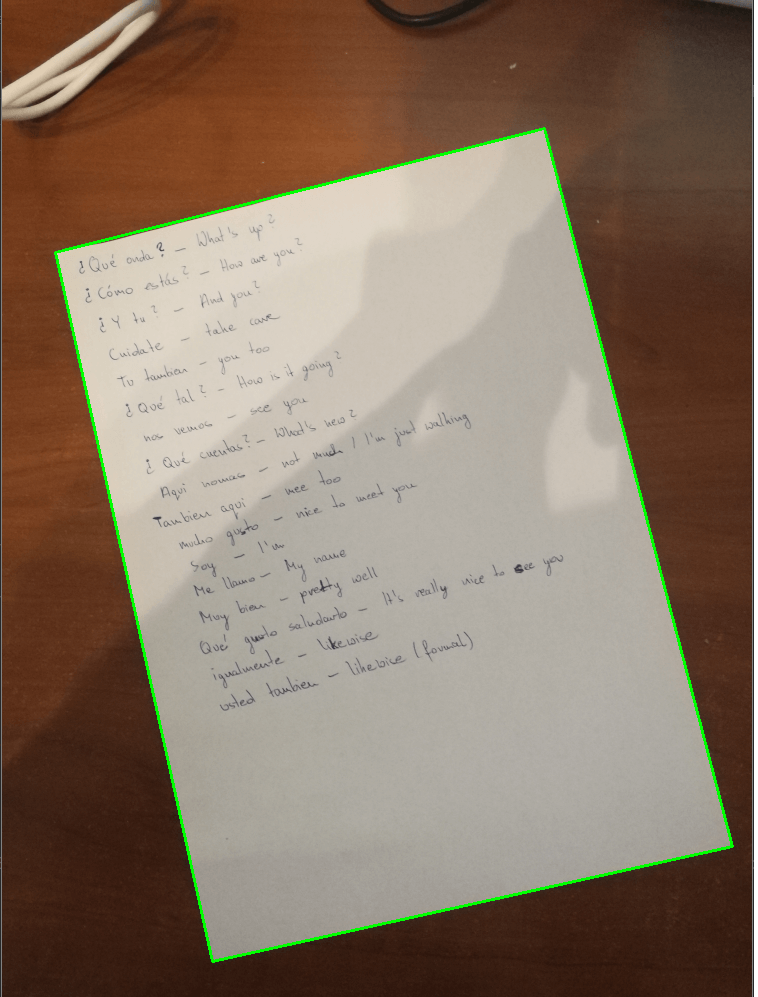 ¿Qué onda? – What's up?
¿Cómo estás? – How are you?
¿Y tu? – And you?
Cuidate – take care
Tu tambien – you too
¿Qué tal? – How is it going?
nos vemos – see you
¿Qué cuentas? – What's new?
Aqui nomas – not much / I'm just walking
Tambien aqui – mee too
mucho gusto – nice to meet you
Soy – I'm
Me llamo – My name
Muy bien – pretty well
Qué gusto saludarlo – It's really nice to see you
igualmente – likewise
usted tambien – likewise (formal)